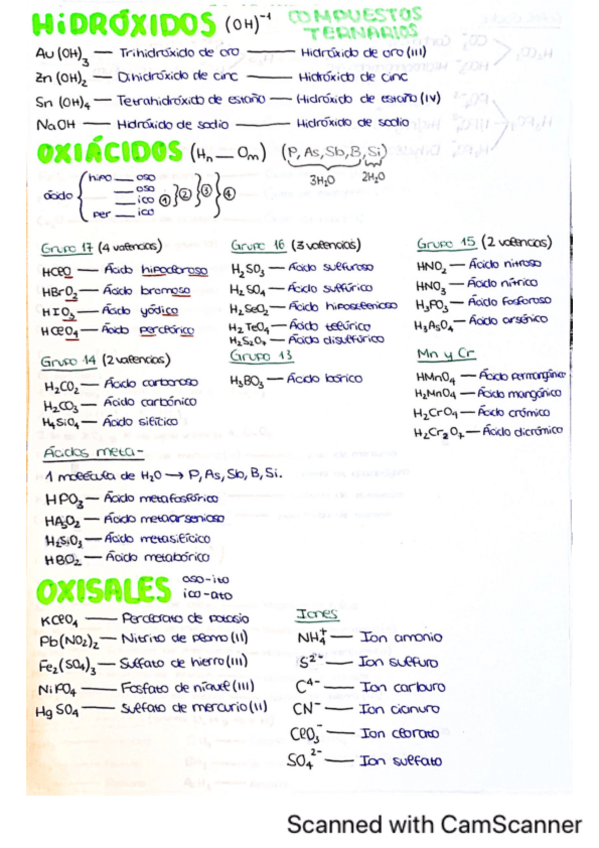 HIDRÓXIDOS (OH)⁻¹ COMPUESTOS TERNARIOS
Au(OH)₃ — Trihidróxido de oro — Hidróxido de oro (III)
Zn(OH)₂ — Dihidróxido de cinc — Hidróxido de cinc
Sn(OH)₄ — Tetrahidróxido de estaño — Hidróxido de estaño (IV)
NaOH — Hidróxido de sodio — Hidróxido de sodio
OXIÁCIDOS (Hn — Om) (P, As, Sb, B, Si)
3H₂O 2H₂O
ácido
hipo — oso
— oso
— ico
per — ico
① ② ③ ④
Grupo 17 (4 valencias)
HClO — Ácido hipocloroso
HBrO₂ — Ácido bromoso
HIO₃ — Ácido yódico
HClO₄ — Ácido perclórico
Grupo 16 (3 valencias)
H₂SO₃ — Ácido sulfuroso
H₂SO₄ — Ácido sulfúrico
H₂SeO₂ — Ácido hiposelenioso
H₂TeO₄ — Ácido telúrico
H₂S₂O₇ — Ácido disulfúrico
Grupo 15 (2 valencias)
HNO₂ — Ácido nitroso
HNO₃ — Ácido nítrico
H₃PO₃ — Ácido fosforoso
H₃AsO₄ — Ácido arsénico
Grupo 14 (2 valencias)
H₂CO₂ — Ácido carbonoso
H₂CO₃ — Ácido carbónico
H₄SiO₄ — Ácido silícico
Grupo 13
H₃BO₃ — Ácido bórico
Mn y Cr
HMnO₄ — Ácido permangánico
H₂MnO₄ — Ácido mangánico
H₂CrO₄ — Ácido crómico
H₂Cr₂O₇ — Ácido dicrómico
Ácidos meta-
1 molécula de H₂O → P, As, Sb, B, Si.
HPO₃ — Ácido metafosfórico
HAsO₂ — Ácido metaarsenioso
H₂SiO₃ — Ácido metasilícico
HBO₂ — Ácido metabórico
OXISALES oso-ito
ico-ato
KClO₄ — Perclorato de potasio
Pb(NO₂)₂ — Nitrito de plomo (II)
Fe₂(SO₄)₃ — Sulfato de hierro (III)
NiPO₄ — Fosfato de níquel (III)
HgSO₄ — Sulfato de mercurio (II)
Iones
NH₄⁺ — Ion amonio
S²⁻ — Ion sulfuro
C⁴⁻ — Ion carburo
CN⁻ — Ion cianuro
ClO₃⁻ — Ion clorato
SO₄²⁻ — Ion sulfato
Scanned with CamScanner